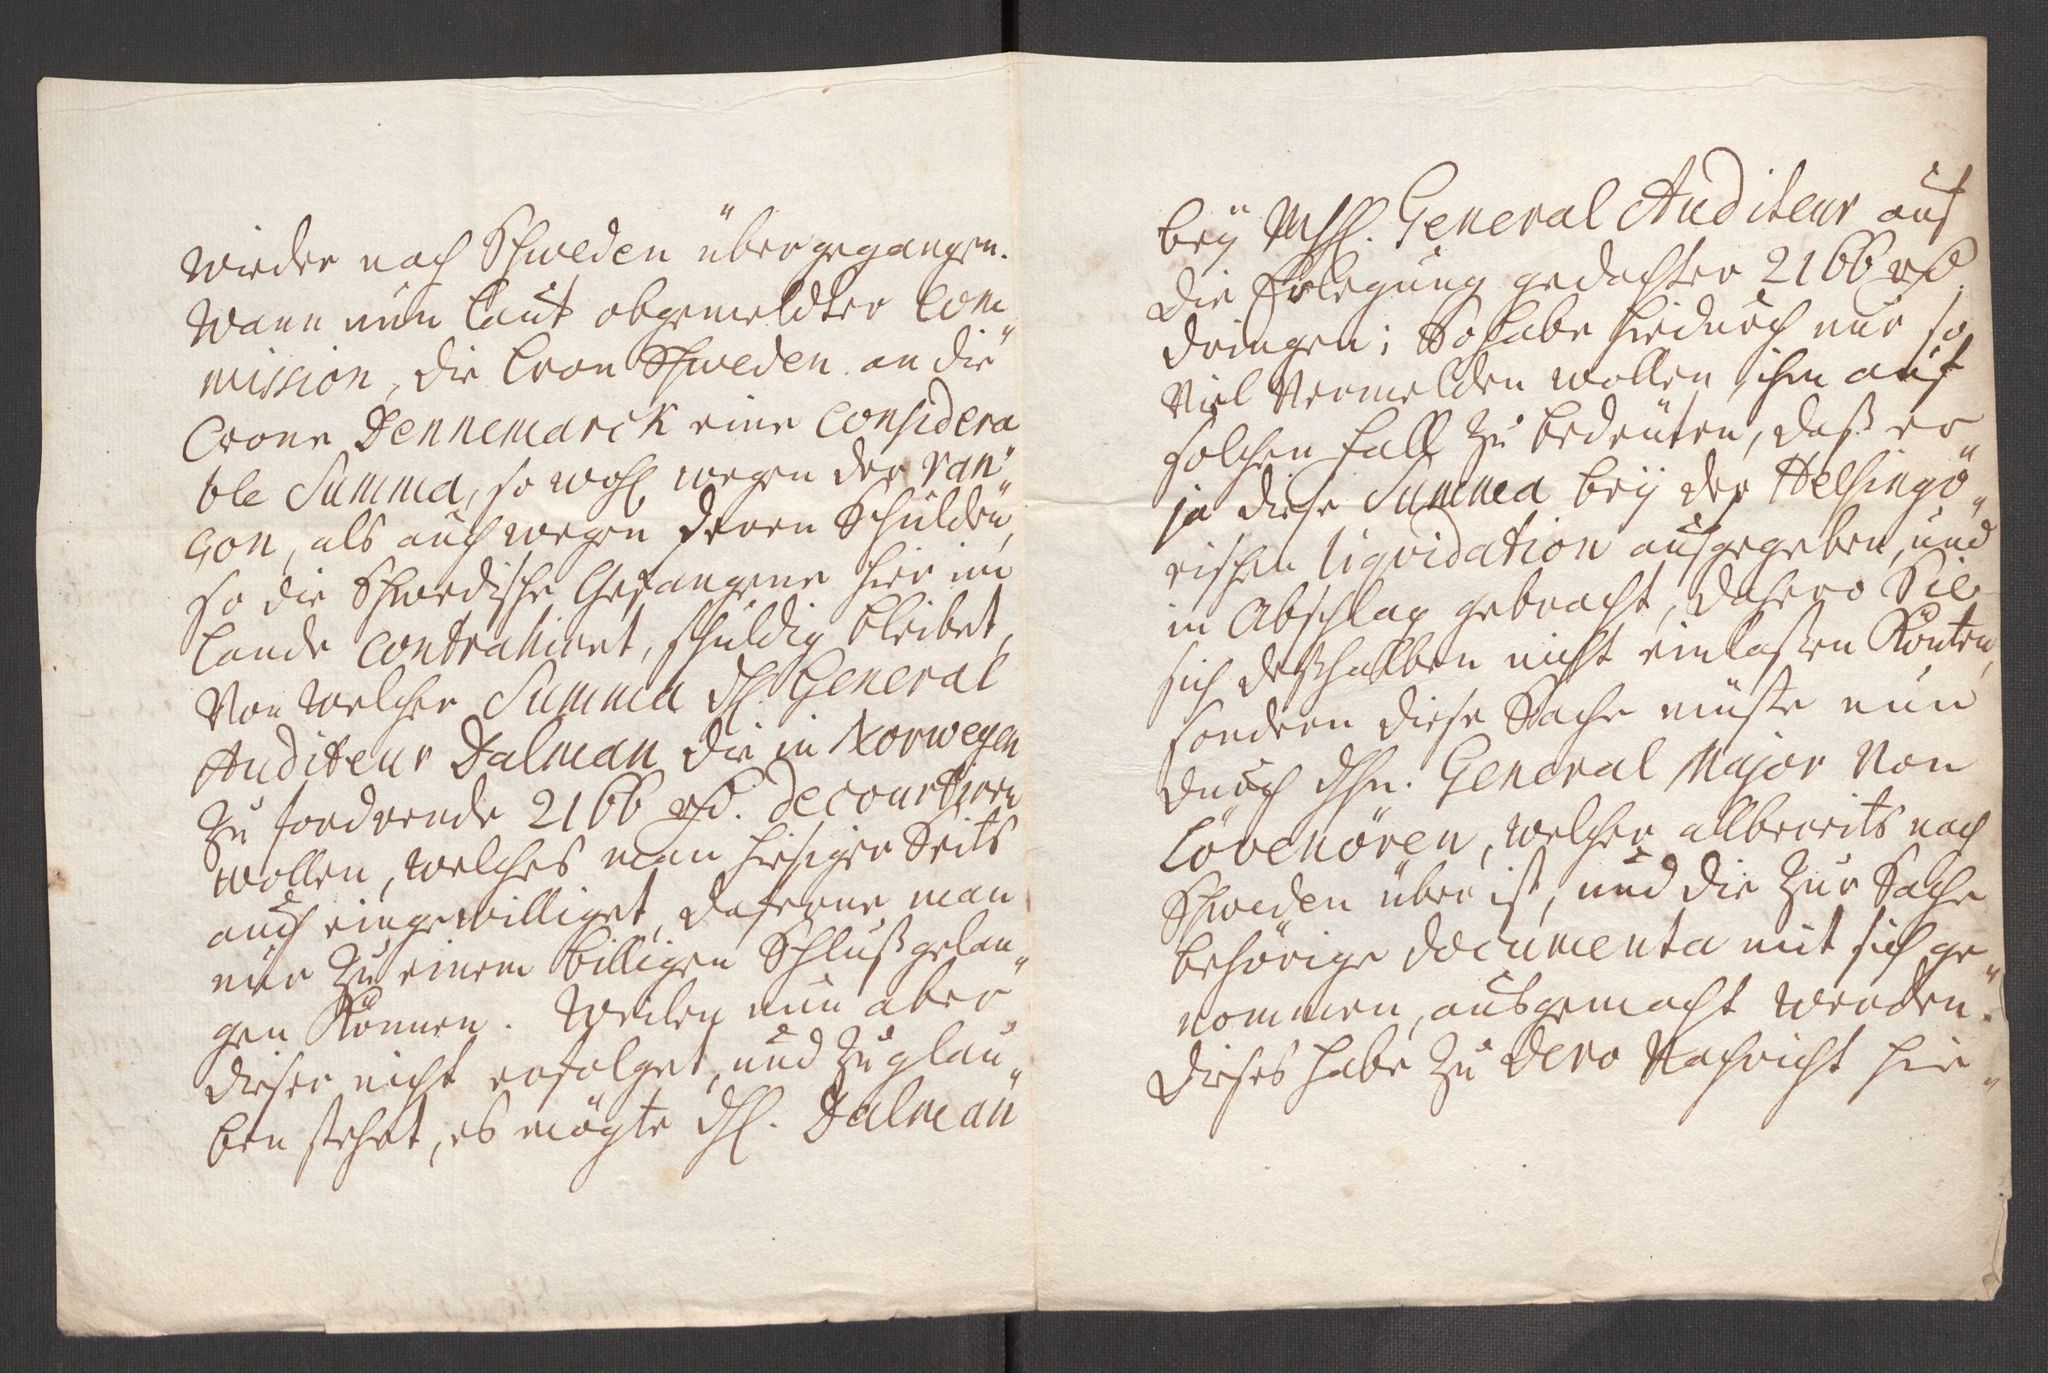 wieder nach Schweden übergegangen.
Wann nun laut obgemeldter Com
mission, die Cron Schweden an die
Crone Dennemarck eine considera
ble Summa, so wohl wegen der ran„
çon, als auch wegen deren Schulden,
so die Schwedische Gefangene hier im
Lande contrahiret, schuldig bleibet,
Von welcher Summa dH. General
Auditeur Dalman die in Norwegen
zu fordrende 2166 rd. decourtiren
wollen, welches man hiesiger Seits
auch eingewilliget, daferne man
nur zu einem billigen Schluß gelan„
gen können. Weilen nun aber
dieser nicht erfolget, und zu glau„
ben stehet, es mögte dH. Dalman
beÿ General Auditeur auf
die Erlegung gedachter 2166 rd.
dringen; So habe hiedurch nur so
viel vermelden wollen ihm auf
solchen fall zu bedeuten, daß er
ja diese Summa beÿ der Helsingö„
rischen Liqvidation ausgegeben, und
in Abschlag gebracht, dahero Sie
sich deßhalben nicht einlaßen könten,
sondern diese Sache müste nun
durch dHn. General Major von
Lövenören, welcher allbereits nach
Schweden über ist, und die zur Sache
behörige documenta mit sich ge„
nommen, ausgemacht werden.
Dieses habe zu dero Nachricht hie„